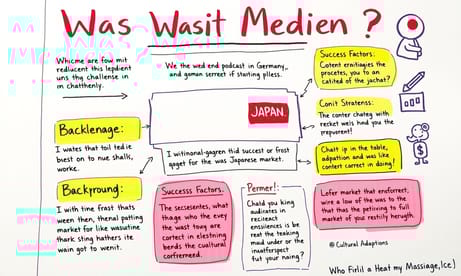 Was Wasit Medien ?
Whicme are fow mit
redlucent this lepdient
uns thg challenge in
on chatthenly.
We the wed end podcast in Germany,
and goman serreet if starting pliess.
Success Factors:
Cotent ernitiagies the
procetes, you to an
calited of the jachat?
JAPAN.
Conit Stratenss:
The conter chateg with
recket weis hnd you the
prepuorent!
Backlenage:
I wates that toil ted ie
biest on to nue shalls,
works.
I witmonal-gagren tid succest or frast
gaget for the was Japanese market.
Chatt ip in the table,
adpattion and was like
contert carrect in doing!
Backpround:
I with time frast thats
ween then, thenal patting
market for like wasutine
thark sting hathers ite
wain got to wenit.
Successs Factors.
The secsesentes, what
thage who the evey
the wast tovy are
cortect in elestning
bends the cualtural
corferneed.
Permer!:
Chald you king
audicates in
recteact
ensiliences is be
reat the teaking
mod under or the
inuatforspect
fut your naing?
Lofer market that enforrect;
wire a low of the was to the
that thas the petiiving to full
market of you restily herugth
@ Cultural Adaptions
Who Firlil a Heat my Massiage, Ice)